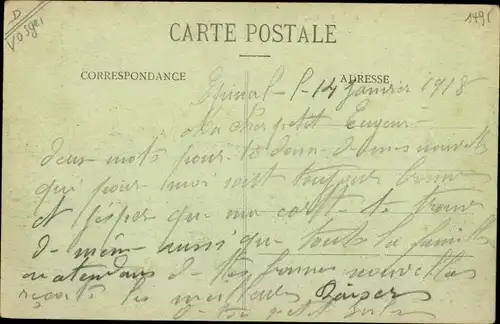 D
Vosges
1491
CARTE POSTALE
CORRESPONDANCE
ADRESSE
Epinal - l - 14 Janvier 1918
Mon cher petit Eugene
deux mots pour te donn d mes nouvelles
qui pour moi sont toujours bonnes
et j'espere que ma carte te trouve
de même aussi que toute la famille
en atendans d tes bonnes nouvelles
reçoit les meilleurs Baisers
petit